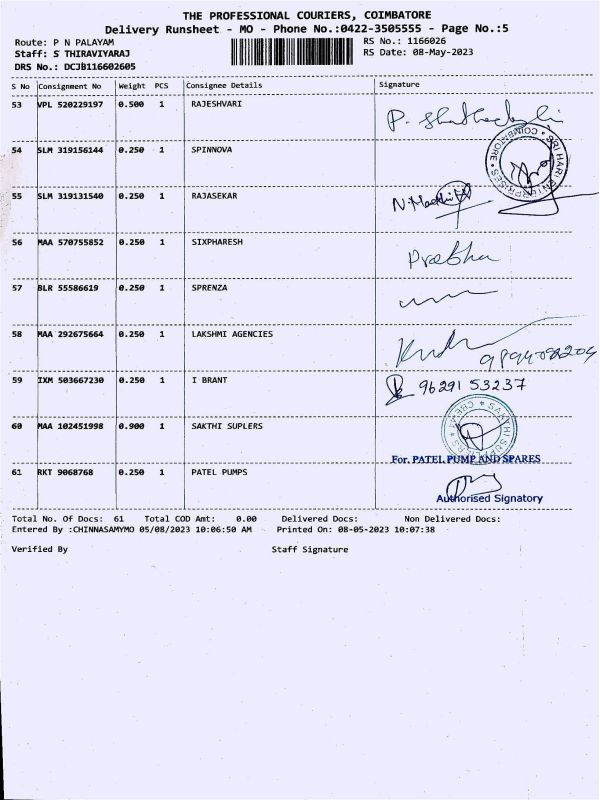 THE PROFESSIONAL COURIERS, COIMBATORE
Delivery Runsheet - MO - Phone No.:0422-3505555 - Page No.:5
Route: P N PALAYAM RS No.: 1166026
Staff: S THIRAVIYARAJ RS Date: 08-May-2023
DRS No.: DCJB116602605
S No Consignment No Weight PCS Consignee Details Signature
53 VPL 520229197 0.500 1 RAJESHVARI
54 SLM 319156144 0.250 1 SPINNOVA
SRI HARI ENTERPRISES * COIMBATORE *
55 SLM 319131540 0.250 1 RAJASEKAR
56 MAA 570755852 0.250 1 SIXPHARESH Prabha
57 BLR 55586619 0.250 1 SPRENZA
58 MAA 292675664 0.250 1 LAKSHMI AGENCIES
59 IXM 503667230 0.250 1 I BRANT 96291 53237
60 MAA 102451998 0.900 1 SAKTHI SUPLERS
For. PATEL PUMP AND SPARES
61 RKT 9068768 0.250 1 PATEL PUMPS
Authorised Signatory
Total No. Of Docs: 61 Total COD Amt: 0.00 Delivered Docs: Non Delivered Docs:
Entered By :CHINNASAMYMO 05/08/2023 10:06:50 AM Printed On: 08-05-2023 10:07:38
Verified By Staff Signature